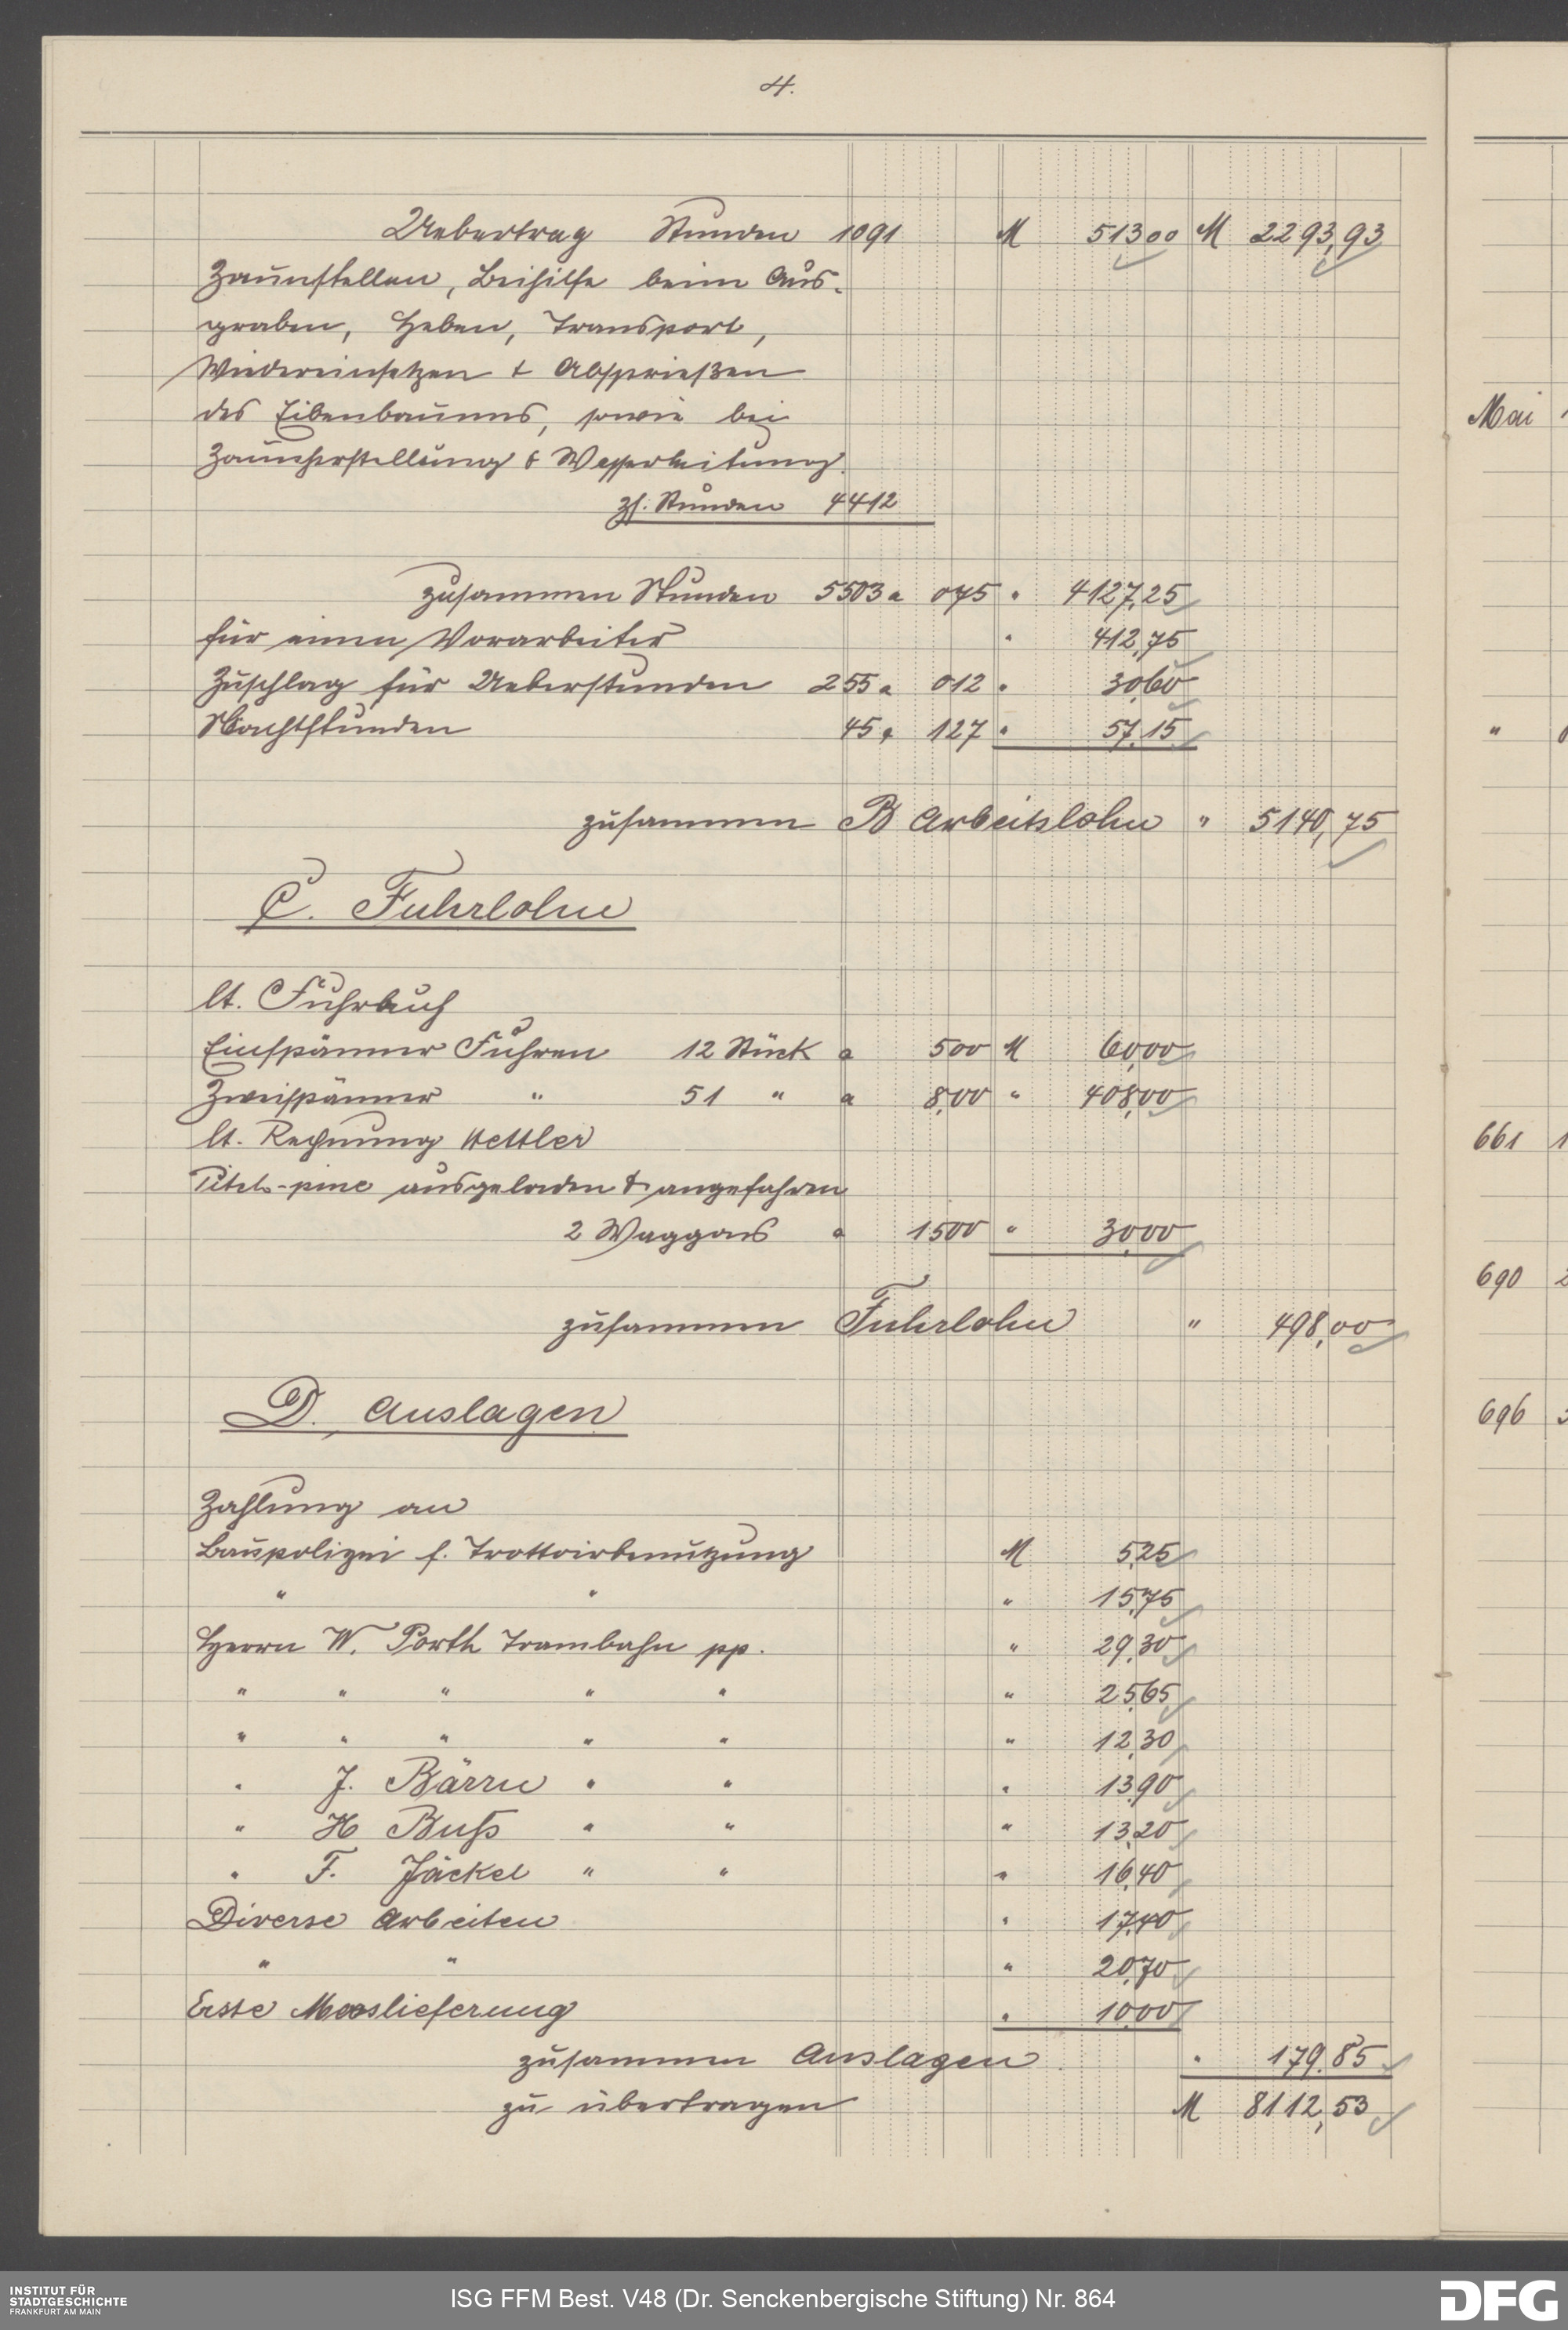 4.
Uebertrag Stunden 1091 M 513 00 M 2293,93
Zaunstellen, Beihilfe beim Aus-
graben, Heben, Transport,
Wiedereinsetzen & Abspießen
des Eibenbaums, sowie bei
Zaunherstellung & Wasserleitung.
zs. Stunden 4412
zusammen Stunden 5503 a 075 " 4127,25
für einen Vorarbeiter " 412,75
Zuschlag für Ueberstunden 255 a 012 " 30,60
Nachtstunden 45 a 127 " 57,15
zusammen B Arbeitslohn " 5140,75
C. Fuhrlohn
lt. Fuhrbuch
Einspänner Fuhren 12 Stück a 500 M 60,00
Zweispänner " 51 " a 8,00 " 408,00
lt. Rechnung Hettler
Pitch-pine ausgeladen & angefahren
2 Waggons a 1500 " 30,00
zusammen Fuhrlohn " 498,00
D. Auslagen
Zahlung an
Baupolizei f. Trottoirbenutzung M 5,25
" " " 15,75
Herrn W. Porth Trambahn pp. " 29,30
" " " " " " 25,65
" " " " " " 12,30
" J. Bärrn " " " 13,90
" H Buß " " " 13,20
" F. Jäckel " " " 16,40
Diverse Arbeiten " 17,40
" " " 20,70
Erste Mooslieferung " 10,00
zusammen Auslagen " 179,85
zu übertragen M 8112,53
Mai
"
661
690
696
INSTITUT FÜR
STADTGESCHICHTE
FRANKFURT AM MAIN
ISG FFM Best. V48 (Dr. Senckenbergische Stiftung) Nr. 864
DFG